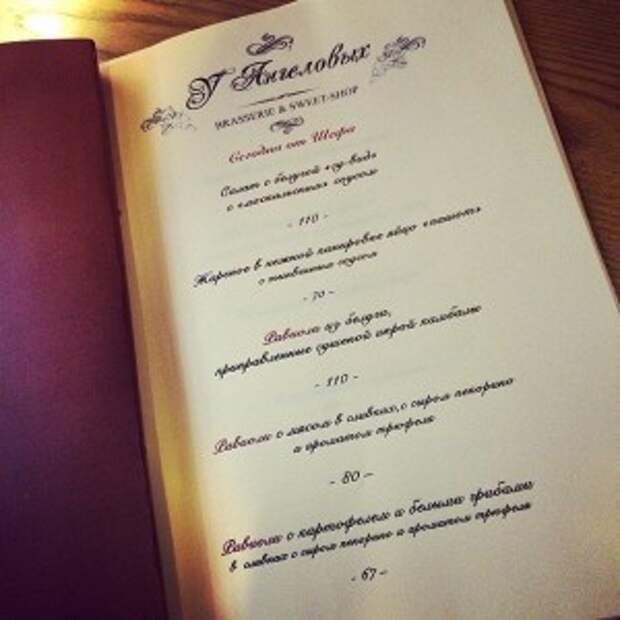 У Ангеловых
BRASSERIE & SWEET-SHOP
Сегодня от Шефа
Салат с белугой «су-вид»
с «апельсиновым» соусом
- 110 -
Жареное в нежной панировке яйцо «пашот»
с тыквенным соусом
- 70 -
Равиоли из белуги,
приправленные сушеной икрой камбалы
- 110 -
Равиоли с мясом в сливках, с сыром пекорино
и ароматом трюфеля
- 80 -
Равиоли с картофелем и белыми грибами
в сливках с сыром пекорино и ароматом трюфеля
- 67 -